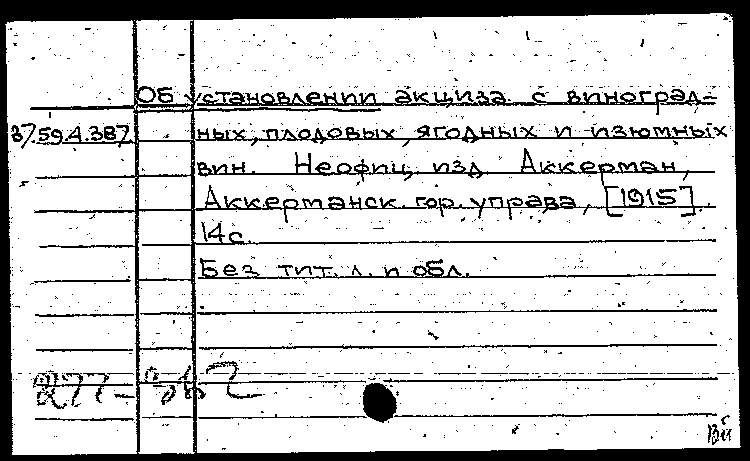 Об установлении акциза с виноград-
37/59.4.387 ных, плодовых, ягодных и изюмных
вин. Неофиц. изд. Аккерман,
Аккерманск. гор. управа, [1915].
14с.
Без тит. л. и обл.
Вй